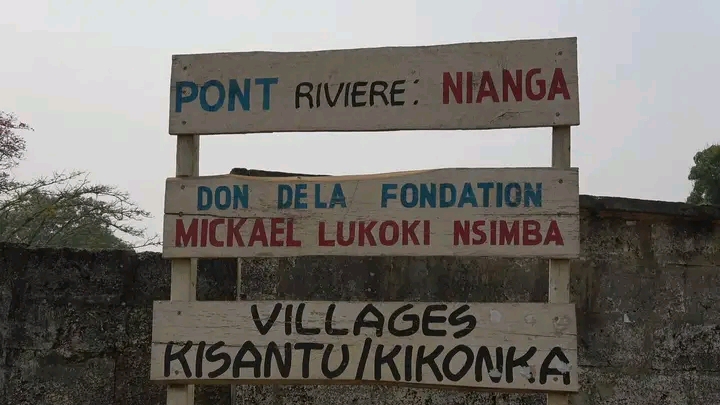 PONT RIVIERE: NIANGA
DON DE LA FONDATION
MICKAEL LUKOKI NSIMBA
VILLAGES
KISANTU/KIKONKA